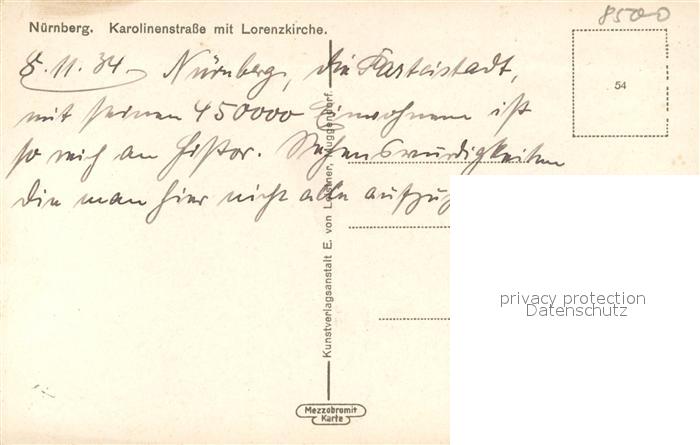 8500
Nürnberg. Karolinenstraße mit Lorenzkirche.
8.11.34. Nürnberg, die Parteistadt,
mit seinen 450000 Einwohnern ist
so reich an histor. Sehenswürdigkeiten
die man hier nicht alle aufzu
54
Kunstverlagsanstalt E. von Leistner, Muggendorf.
privacy protection
Datenschutz
Mezzobromit
Karte